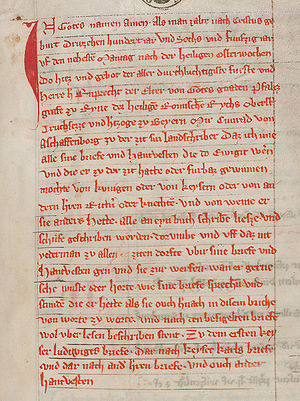 In Gotes namen amen als man zalte nach Cristus ge
burt Drutzehen hundert iar vnd Sechs vnd funfzig iar
vf den nehesten Mantag nach der heiligen osterwochen
Do hiez vnd gebot der aller durchluchtigste furste vnd
herre h Ruprecht der Elter von Gotes gnaden Pfaltz
grafe zu Ryne des heilige Romische Rychs Oberst
Truchsezze vnd herzoge zu Beyern Mir Cunrad von
Aschaffenborg zu der zit sin lantschriber Daz ich ime
alle sine briefe vnd hantvesten die do Ewigit wern
vnd die er zu der zit hatte oder furbaz gewunnen
mochte von kunigen oder von keysern oder von an
dern hren Rittern oder knechten vnd von weme er
sie anders hette alle an eyn buch schribe lieze vnd
schuffe geschriben werden
yederman zu allen ziten dorfte vbir sine briefe vnd
hantvesten gen vnd sie zur werfen wan er gerne
sehe wuste oder horte wie sine briefe sprechen vnd
stunde die er hette als sie ouch hnach in disem buche
von worte zu worte vnd nach den besigelten briefe
wol vber lesen beschriben stent Zu dem ersten key
ser ludwiges briefe Dar nach keyser karls briefe
vnd dar nach and hren briefe vnd ouch ander
hantvesten